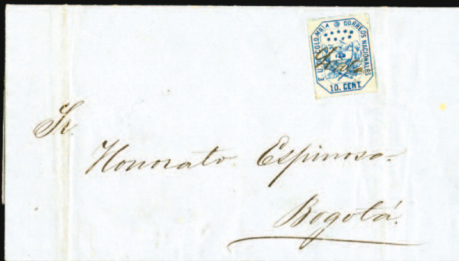 E. U. DE COLOMBIA CORREOS NACIONALES
10. CENT
Sr.
Honorato Espinosa
Bogotá.